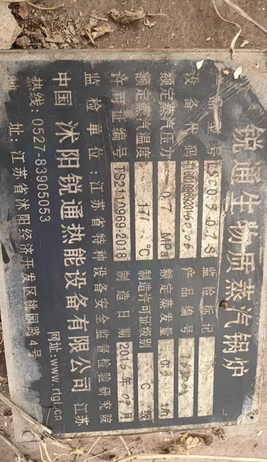 锐通生物质蒸汽锅炉
设备型号 监检标记
设备代码 产品编号
额定蒸汽压力 MPa 额定蒸发量 0.3 t/h
额定蒸汽温度 171 ℃ 制造许可级别 C 级
许可证编号 TS2110969-2018 制造日期 2016年09月
监检单位:江苏省特种设备安全监督检验研究院
中国 沭阳锐通热能设备有限公司 江苏
热线:0527-83905053 网址:www.rtgl.cn
地址:江苏省沭阳经济开发区桃园路4号